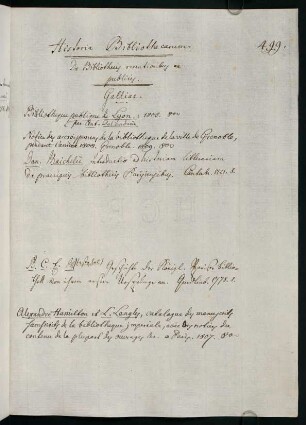 Historia Bibliothecarum
499.
De Bibliothecis recentioribus
publicis.
Galliae.
Bibliotheque publique de Lyon, 8vo
par Ant.
Notice des accroissemens de la bibliotheque de la ville de Grenoble,
pendant l'année 1808. Grenoble 1809. 8vo
Dan. Maichelii Introductio ad historiam literariam
de praecipuis bibliothecis Parisiensibus. Cantab. 1721. 8.
Geschichte der Königl. Pariser Biblio-
thek von ihrem ersten Ursprunge an. Quedlinb. 1778. 8.
Alexander Hamilton et L. Langlès, catalogue des manuscrits
samskrits de la bibliotheque imperiale, avec des notices du
contenu de la plupart des ouvrages &c. a Paris. 1807. 8vo.